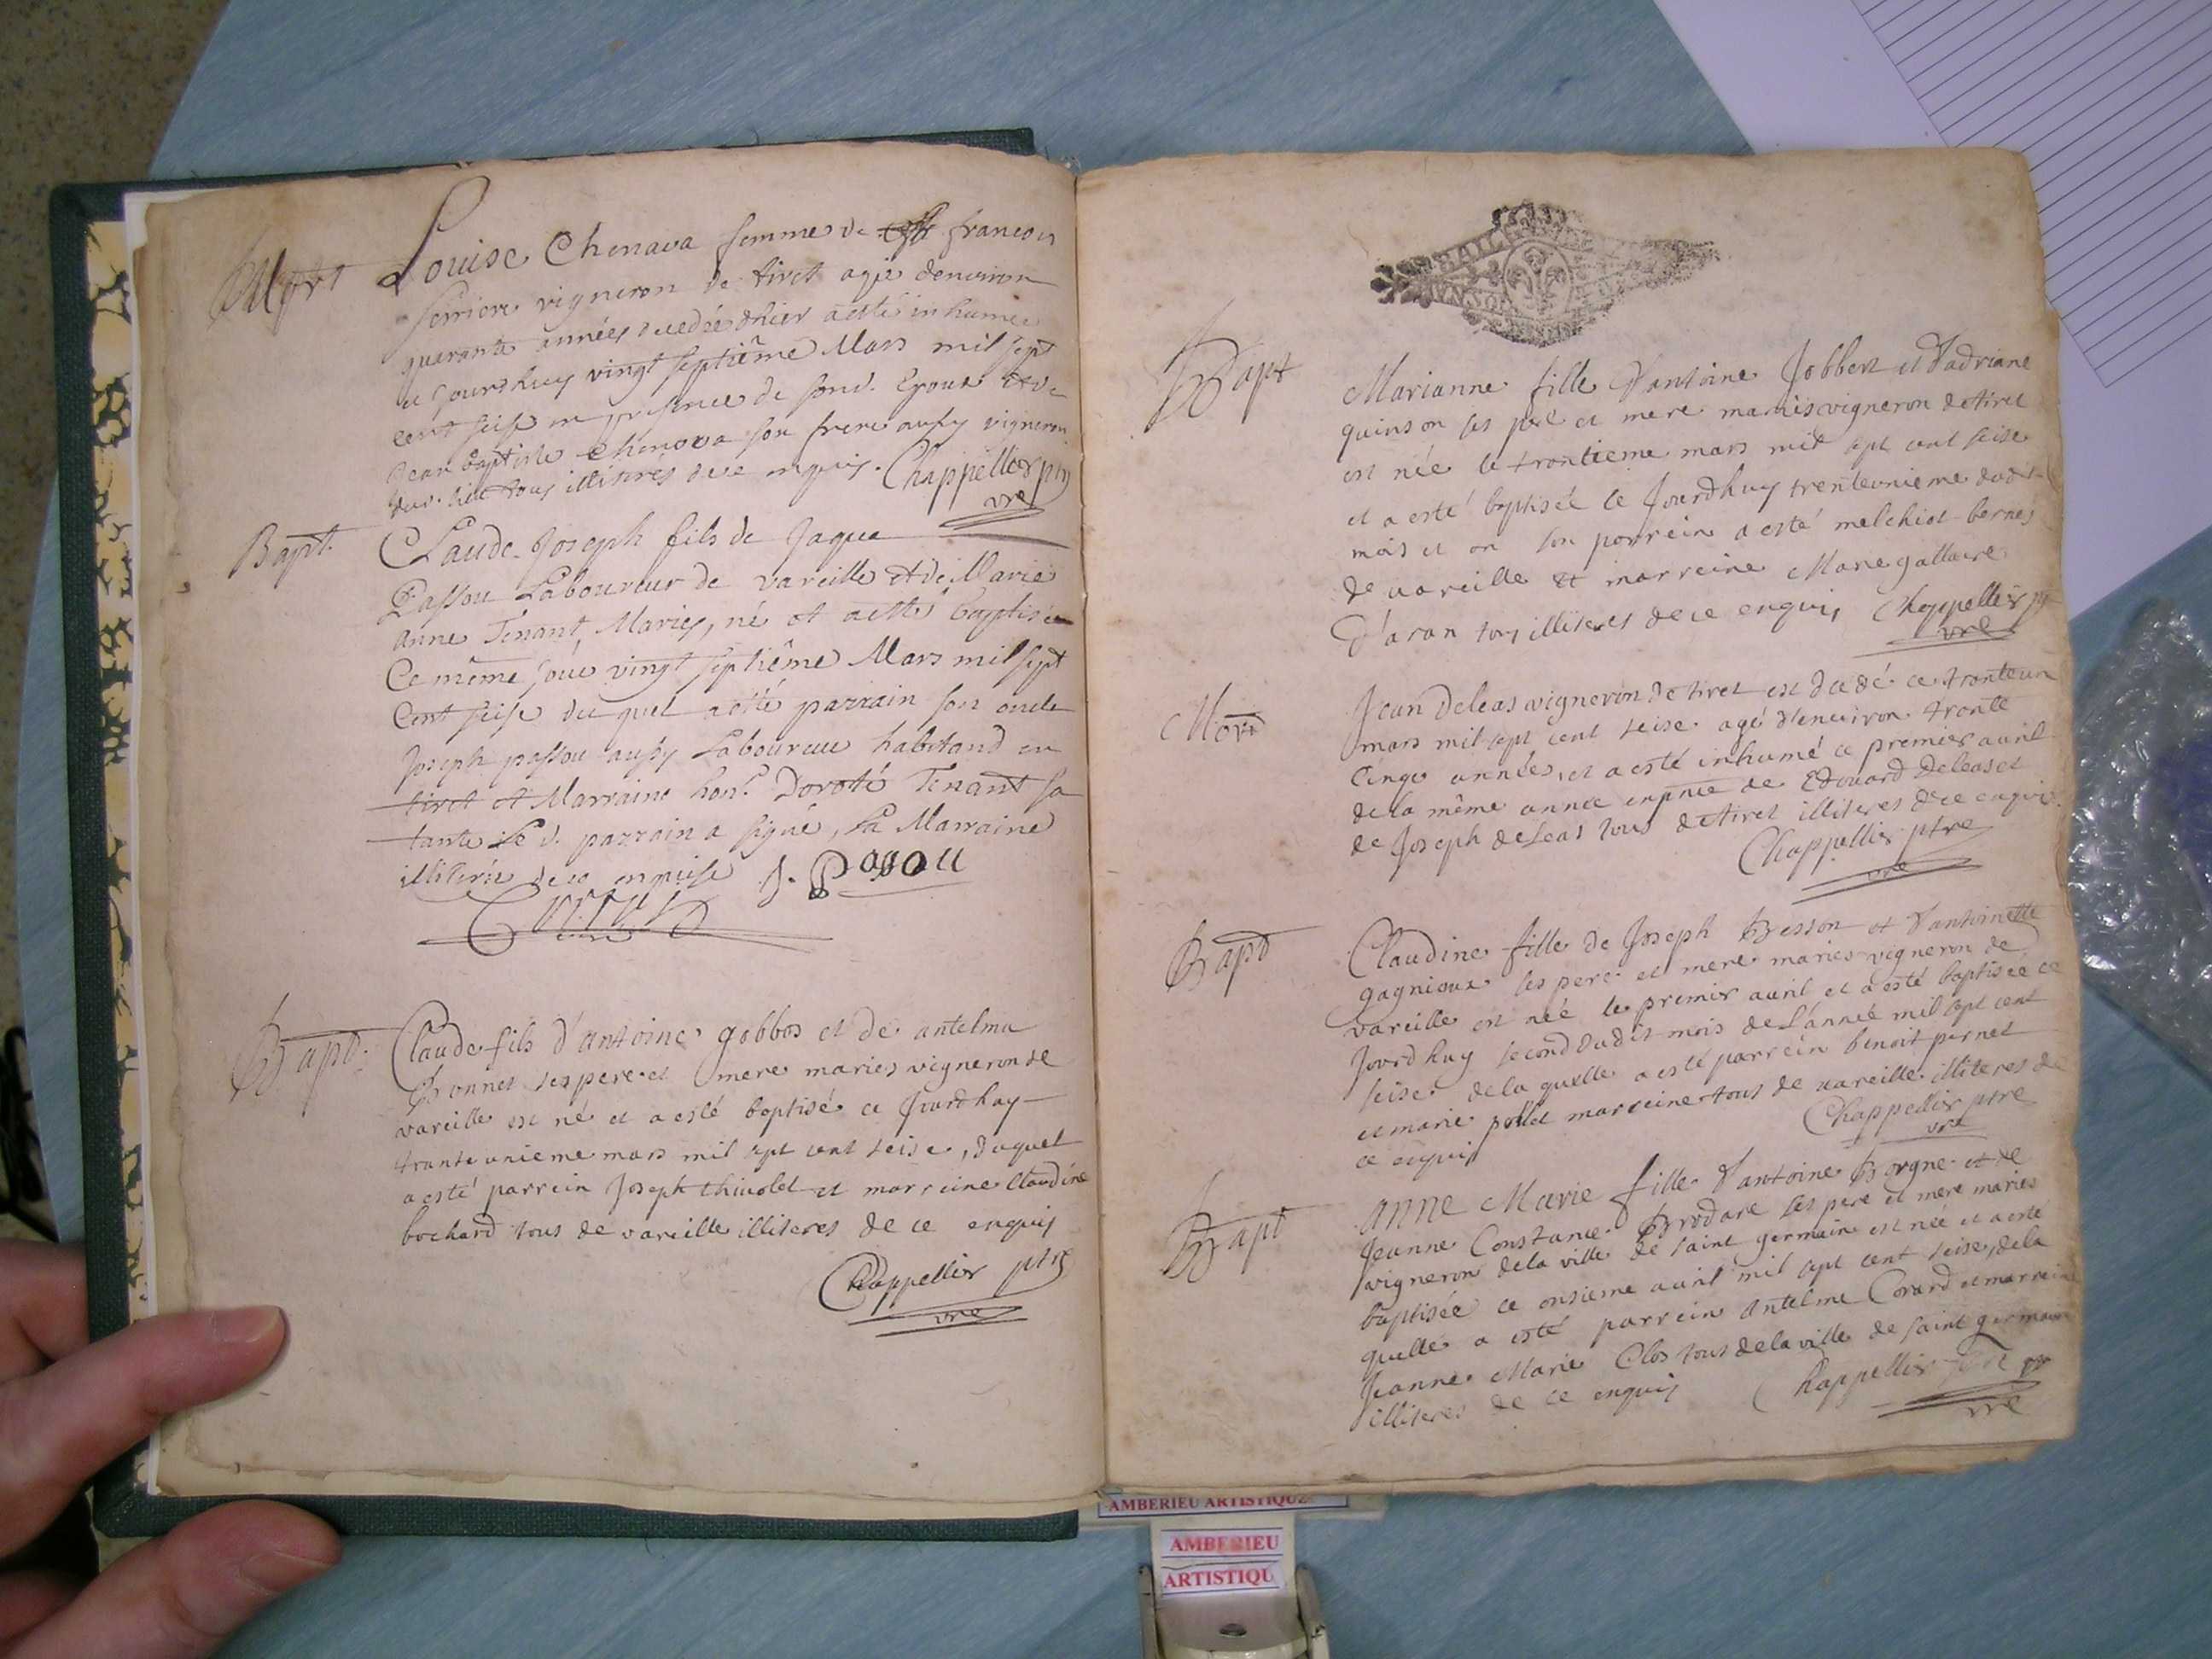 Mort
Louise Chenava femme de françois
vigneron de tiret agée denuiron
quarante années decedée dhier a esté inhumée
ce Jourdhuy vingt septiême Mars mil sept
cent seise en presence de son d. Epoux et de
Jean baptiste chenava son frere aussy vigneron
dud. lieu tous illiterés de ce enquis. Chappellier ptre
vre
Bapt.
Claude Joseph fils de Jaque
Passou Laboureur de vareille et de Marie
anne Tenant, Mariés, né et a esté baptisé
Ce même Jour vingt septiême Mars mil sept
Cent seise du quel a esté parrain son oncle
Joseph passou aussy Laboureur habitand en
tiret et Marraine hon. Doroté Tenant sa
tante Le d. parrain a signé, La Marraine
illiterée de ce enquise J. Passou
Bapt.
Claude fils d'antoine gobbos et de antelma
Bonnet ses pere et mere mariés vigneron de
vareille est né et a esté baptisé ce Jourdhuy
trante unieme mars mil sept cent seise, duquel
a esté parrein Joseph thiuolet et marreine Claudine
bochard tous de vareille illiteres de ce enquis
Chappellier ptre
vre
BAIL
Bapt
Marianne fille d'antoine Jobbert et d'adriane
quinson ses peré et mere mariés vigneron de tiret
est née le trentieme mars mil sept cent seise
et a esté baptisée ce Jourdhuy trenteunieme dudit
mois et an son parrein a esté melchiot bernes
de vareille et marreine Marie gallaire
d'aran tous illiteres de ce enquis Chappellier ptre
vre
Mort
Jean Deleas vigneron de tiret est decedé ce tranteun
mars mil sept cent seise agé d'enuiron trante
cinqe années, et a esté inhumé ce premier auril
de la même année en pnce de Edouard Deleas et
de Joseph deleas tous de tiret illiteres de ce enquis
Chappellier ptre
vre
Bapt
Claudine fille de Joseph Besson et d'antoinette
gagnioux ses pere et mere mariés vigneron de
vareille est née le premier auril et a esté baptisée ce
Jourdhuy second dudit mois de L'année mil sept cent
seise de la quelle a esté parrein benoit pernet
et marie pollet marreine tous de vareille illiteres de
ce enquis Chappellier ptre
vre
Bapt
Anne Marie fille d'antoine Borgne et de
Jeanne Constance Brodare ses pere et mere mariés
vigneron dela ville de saint germain est née et a esté
baptisée ce onsieme auril mil sept cent seise, dela
quelle a esté parrein Antelme Corard et marreine
Jeanne Marie Clos tous dela ville de saint germain
illiteres de ce enquis Chappellier
vre
AMBERIEU ARTISTIQUE
AMBERIEU
ARTISTIQU